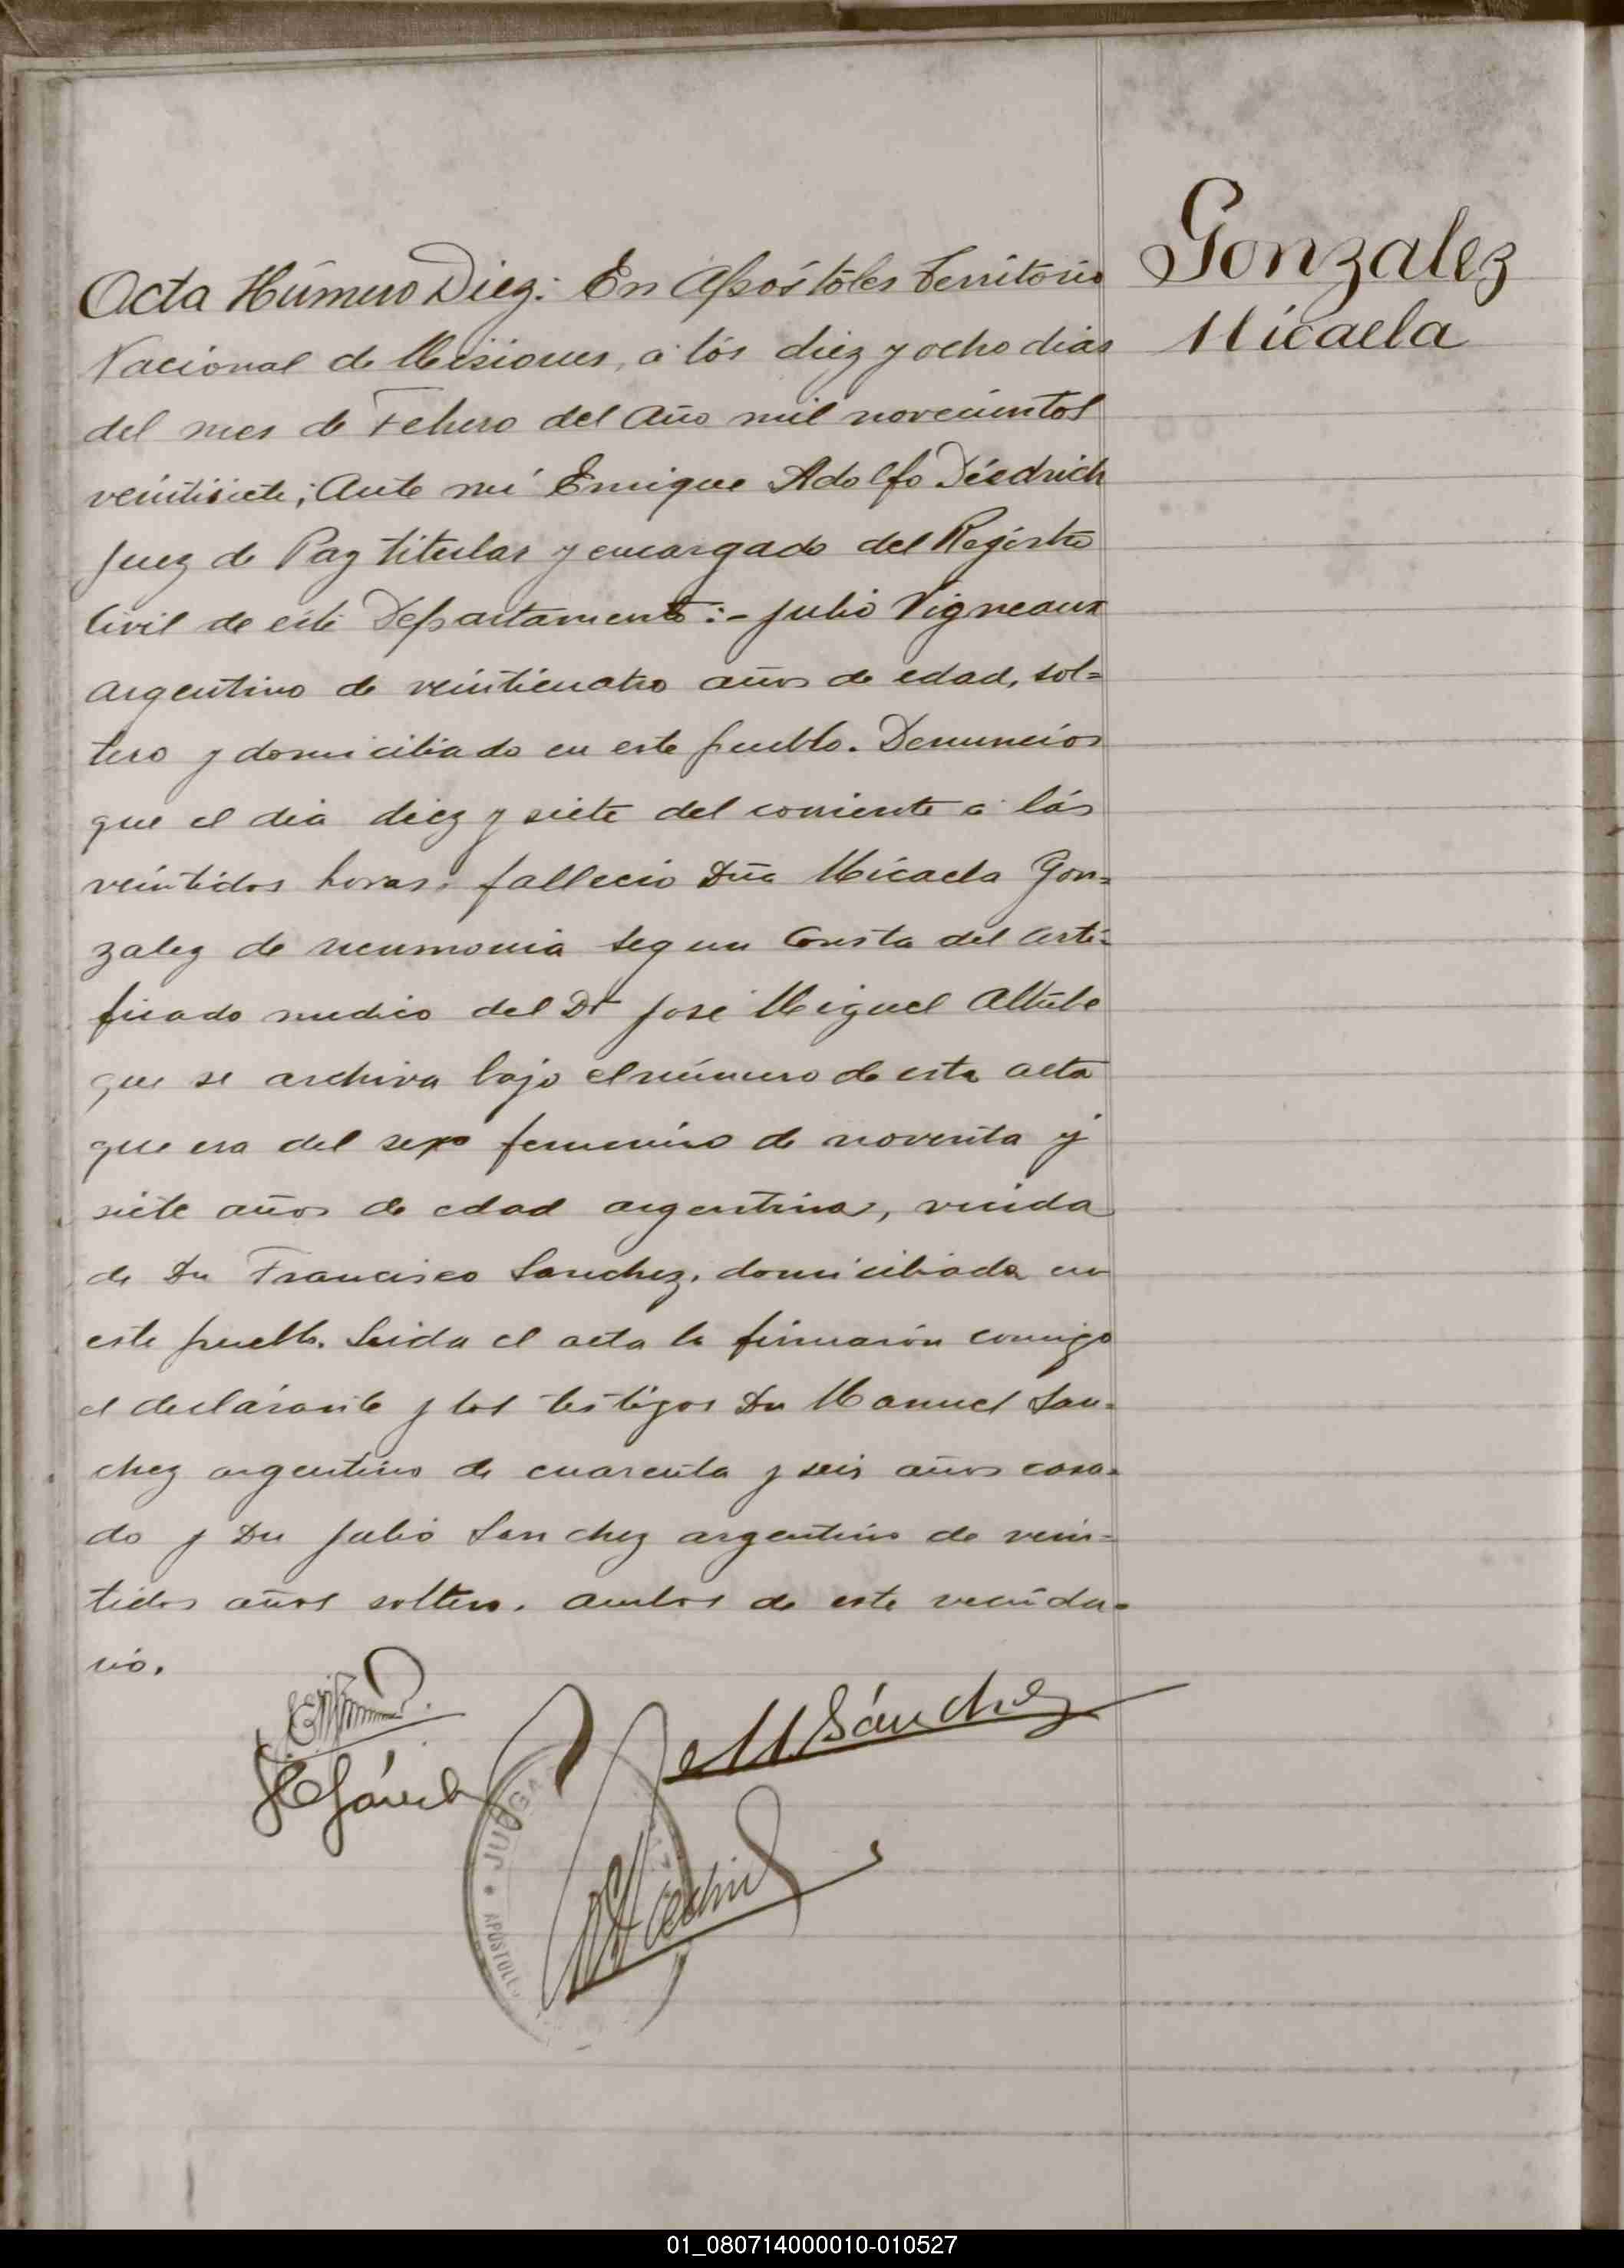 Gonzalez
Micaela
Acta Número Diez: En Apóstóles Territorio
Nacional de Misiones, a lós diez y ocho dias
del mes de Febrero del Año mil novecientos
veintisiete; Ante mi Enrique Adolfo Diedrich
Juez de Paz titular y encargado del Registro
Civil de este Departamento:- Julio Vigneaux
argentino de veinticuatro años de edad, sol=
tero y domiciliado en este pueblo. Denunció
que el dia diez y siete del corriente a lás
veintidos horas, fallecio Dña Micaela Gon=
zalez de neumonia segun consta del certi=
ficado medico del Dr José Miguel Altube
que se archiva bajo el número de esta acta
que era del sexo femenino de noventa y
siete años de edad argentina, viuda
de Dn Francisco Sanchez, domiciliada en
este pueblo. Leida el acta la firmarón conmigo
el declarante y los testigos Dn Manuel San=
chez argentino de cuarenta y seis años casa=
do y Dn Julio Sanchez argentino de vein=
tidos años soltero, ambos de este vecinda=
rio.
M. Sánchez
JUZGA
APOSTOLE
01_080714000010-010527